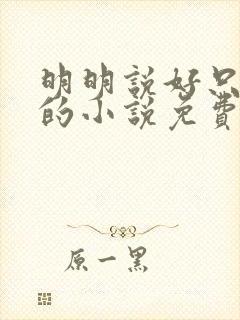 明明說好只
的小說免費
原一黑